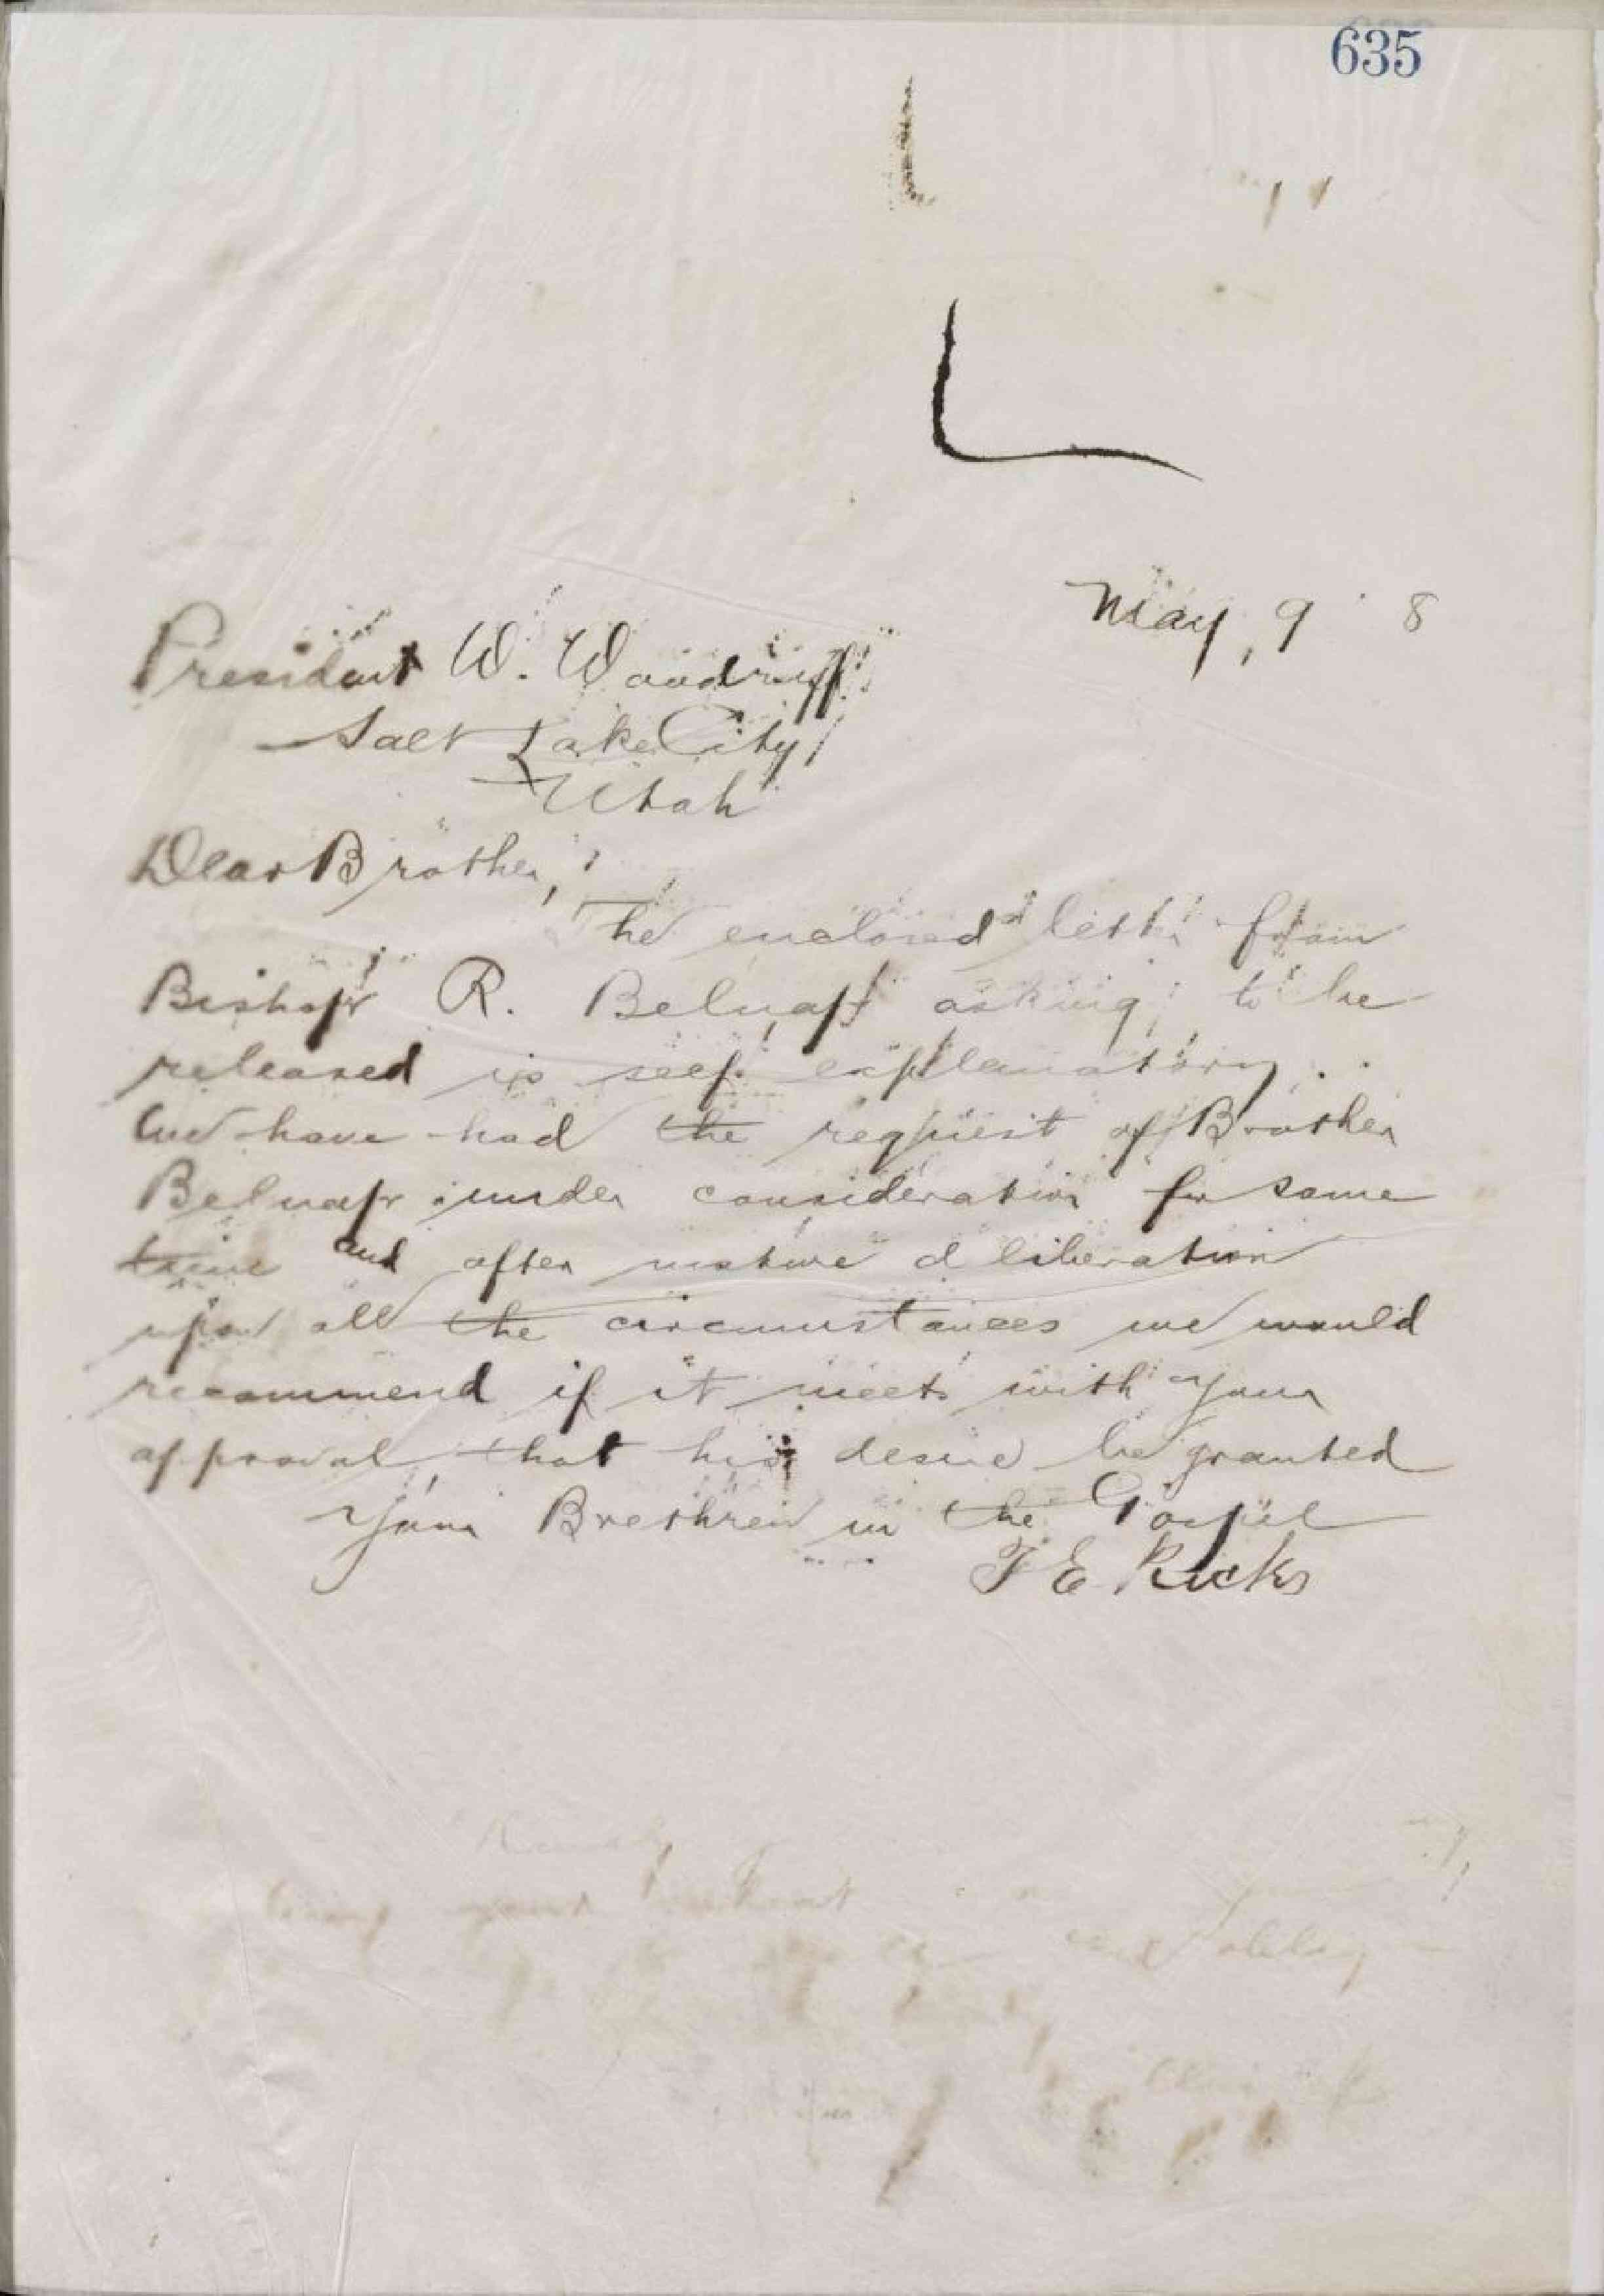 635
May, 9 8
President W. Woodruff
Salt Lake City
Utah
Dear Brother,
The enclosed letter from
Bishop R. Belnap asking to be
released is self explanatory.
We have had the request of Brother
Belnap under consideration for some
time and after mature deliberation
upon all the circumstances we would
recommend if it meets with your
approval that his desire be granted
Your Brethren in the Gospel
T E Ricks